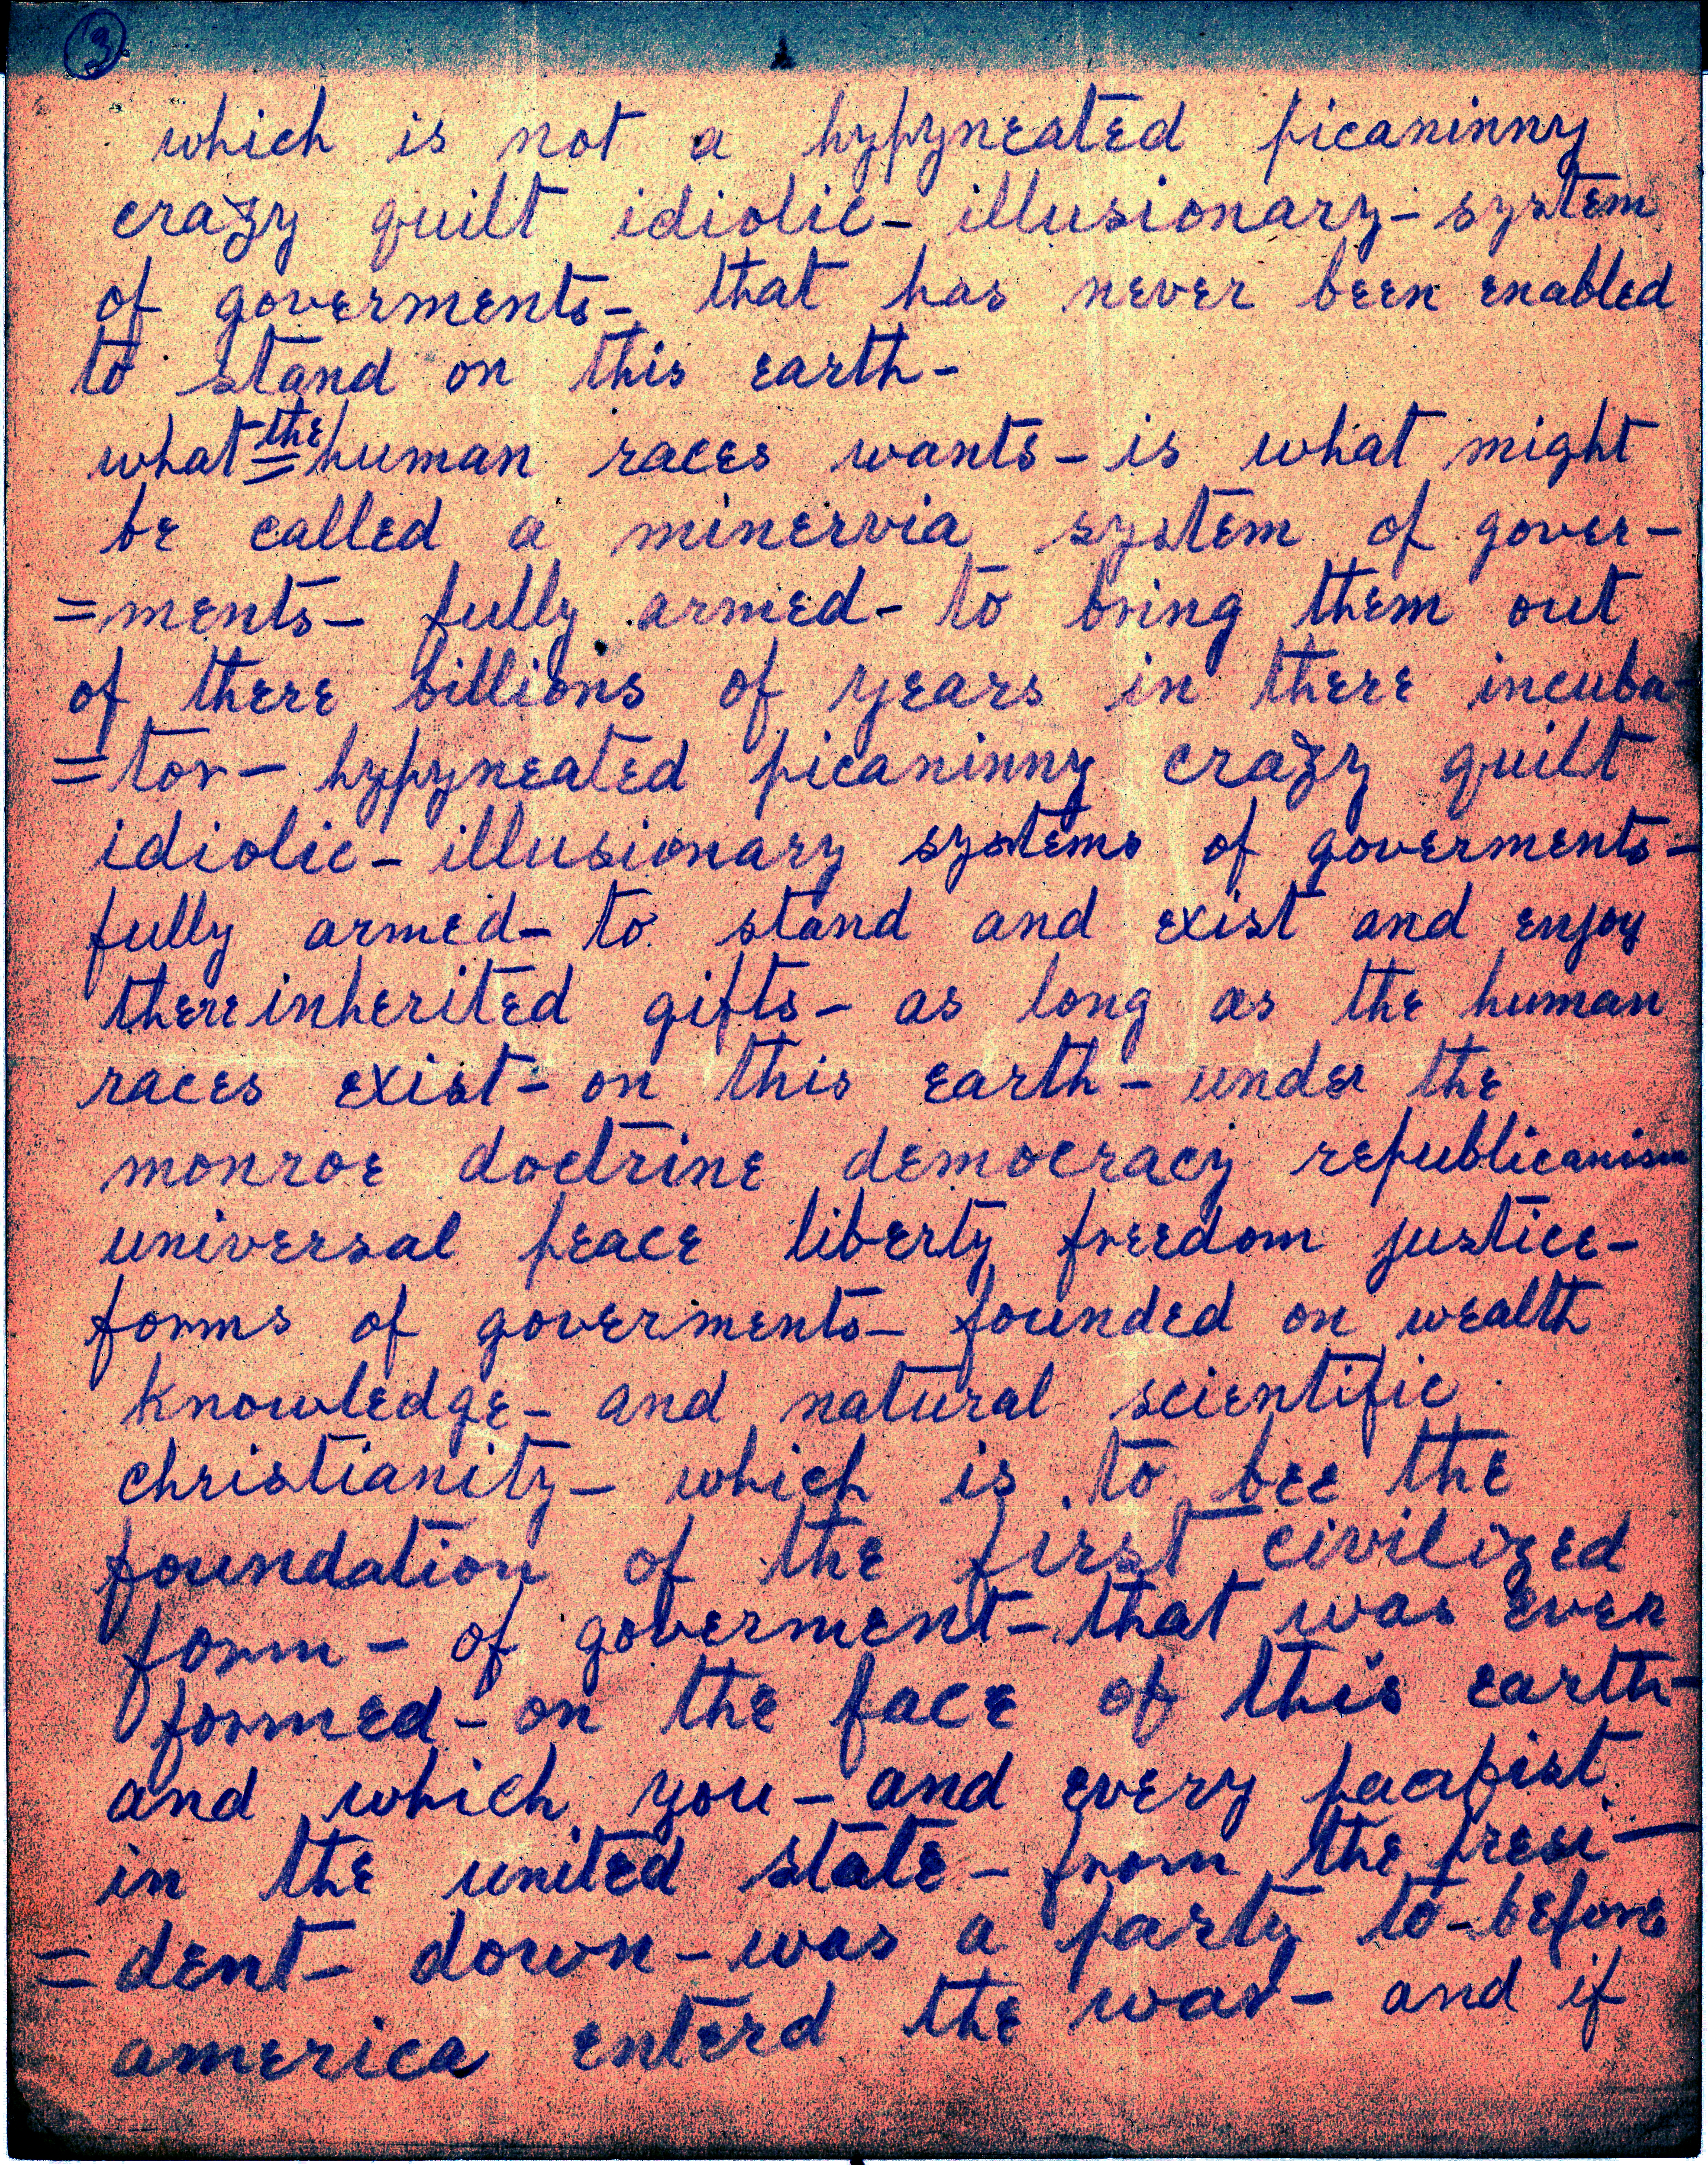 3
which is not a hypyneated picaninny
crazy quilt idiolic- illusionary- system
of goverments- that has never been enabled
to stand on this earth-
what the human races wants- is what might
be called a minervia system of gover-
=ments- fully armed- to bring them out
of there billions of years in there incuba-
=tor- hypyneated picaninny crazy quilt
idiolic- illusionary systems of goverments-
fully armed- to stand and exist and enjoy
there inherited gifts- as long as the human
races exist- on this earth- under the
monroe doctrine democracy republicanism
universal peace liberty freedom justice-
forms of goverments- founded on wealth
knowledge- and natural scientific
christianity- which is to bee the
foundation of the first civilized
form- of goverment- that was ever
formed- on the face of this earth-
and which you- and every pacafist
in the united state- from the presi-
=dent- down- was a party to- before
america enterd the war- and if